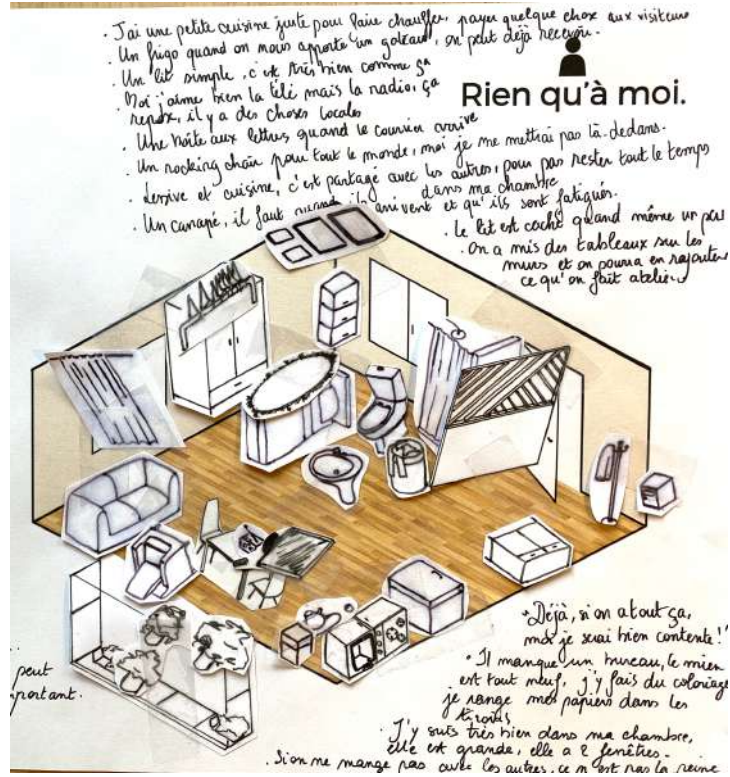 . J'ai une petite cuisine juste pour faire chauffer, payer quelque chose aux visiteurs
. Un frigo quand on nous apporte un gâteau, on peut déjà recevoir.
. Un lit simple, c'est très bien comme ça
. Moi j'aime bien la télé mais la radio, ça
repose, il y a des choses locales
. Une boîte aux lettres quand le courrier arrive
. Un rocking chair pour tout le monde, moi je me mettrai pas là-dedans.
. Lessive et cuisine, c'est partagé avec les autres, pour pas rester tout le temps
dans ma chambre
. Un canapé, il faut quand ils arrivent et qu'ils sont fatigués.
Rien qu'à moi.
. Le lit est caché quand même un peu
. On a mis des tableaux sur les
murs et on pourra en rajouter
ce qu'on fait atelier
peut
portant.
"Déjà, si on a tout ça,
moi je serai bien contente!"
. Il manque un bureau, le mien
est tout neuf, j'y fais du coloriage
je range mes papiers dans les
tiroirs
. J'y suis très bien dans ma chambre,
elle est grande, elle a 2 fenêtres.
. Si on ne mange pas avec les autres, ce n'est pas la peine